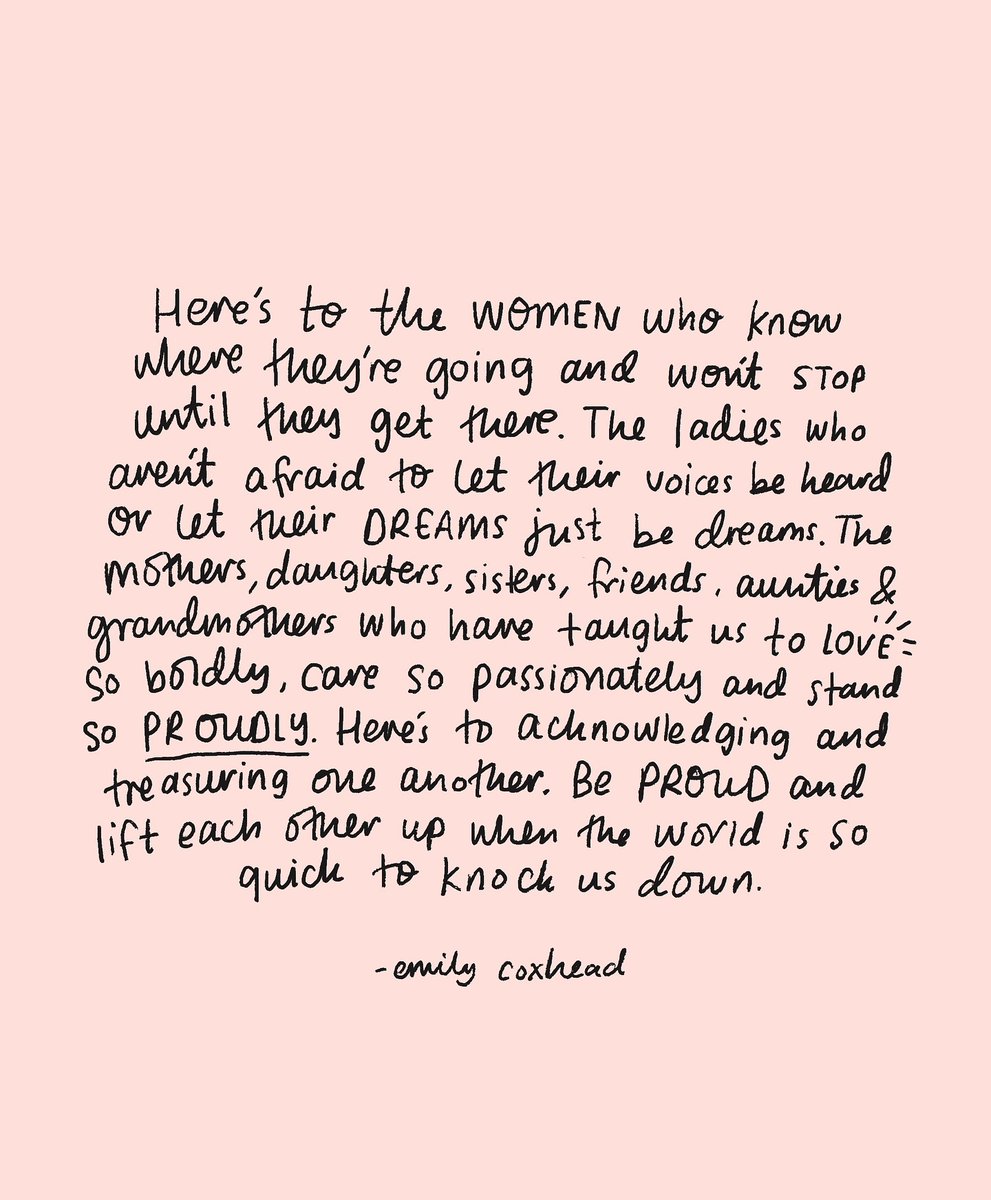 Here's to the WOMEN who know
where they're going and won't STOP
until they get there. The ladies who
aren't afraid to let their voices be heard
or let their DREAMS just be dreams. The
mothers, daughters, sisters, friends, aunties &
grandmothers who have taught us to LOVE
so boldly, care so passionately and stand
so PROUDLY. Here's to acknowledging and
treasuring one another. Be PROUD and
lift each other up when the world is so
quick to knock us down.
-emily coxhead